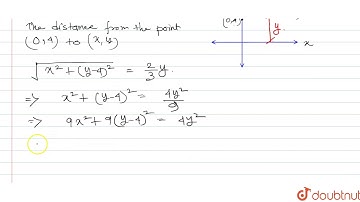 The distance from the point
(0,4) to (x,y)
√x²+(y-4)² = 2/3 y.
=> x²+(y-4)² = 4y²/9
=> 9x²+9(y-4)² = 4y²
(0,4)
y
x
doubtnut